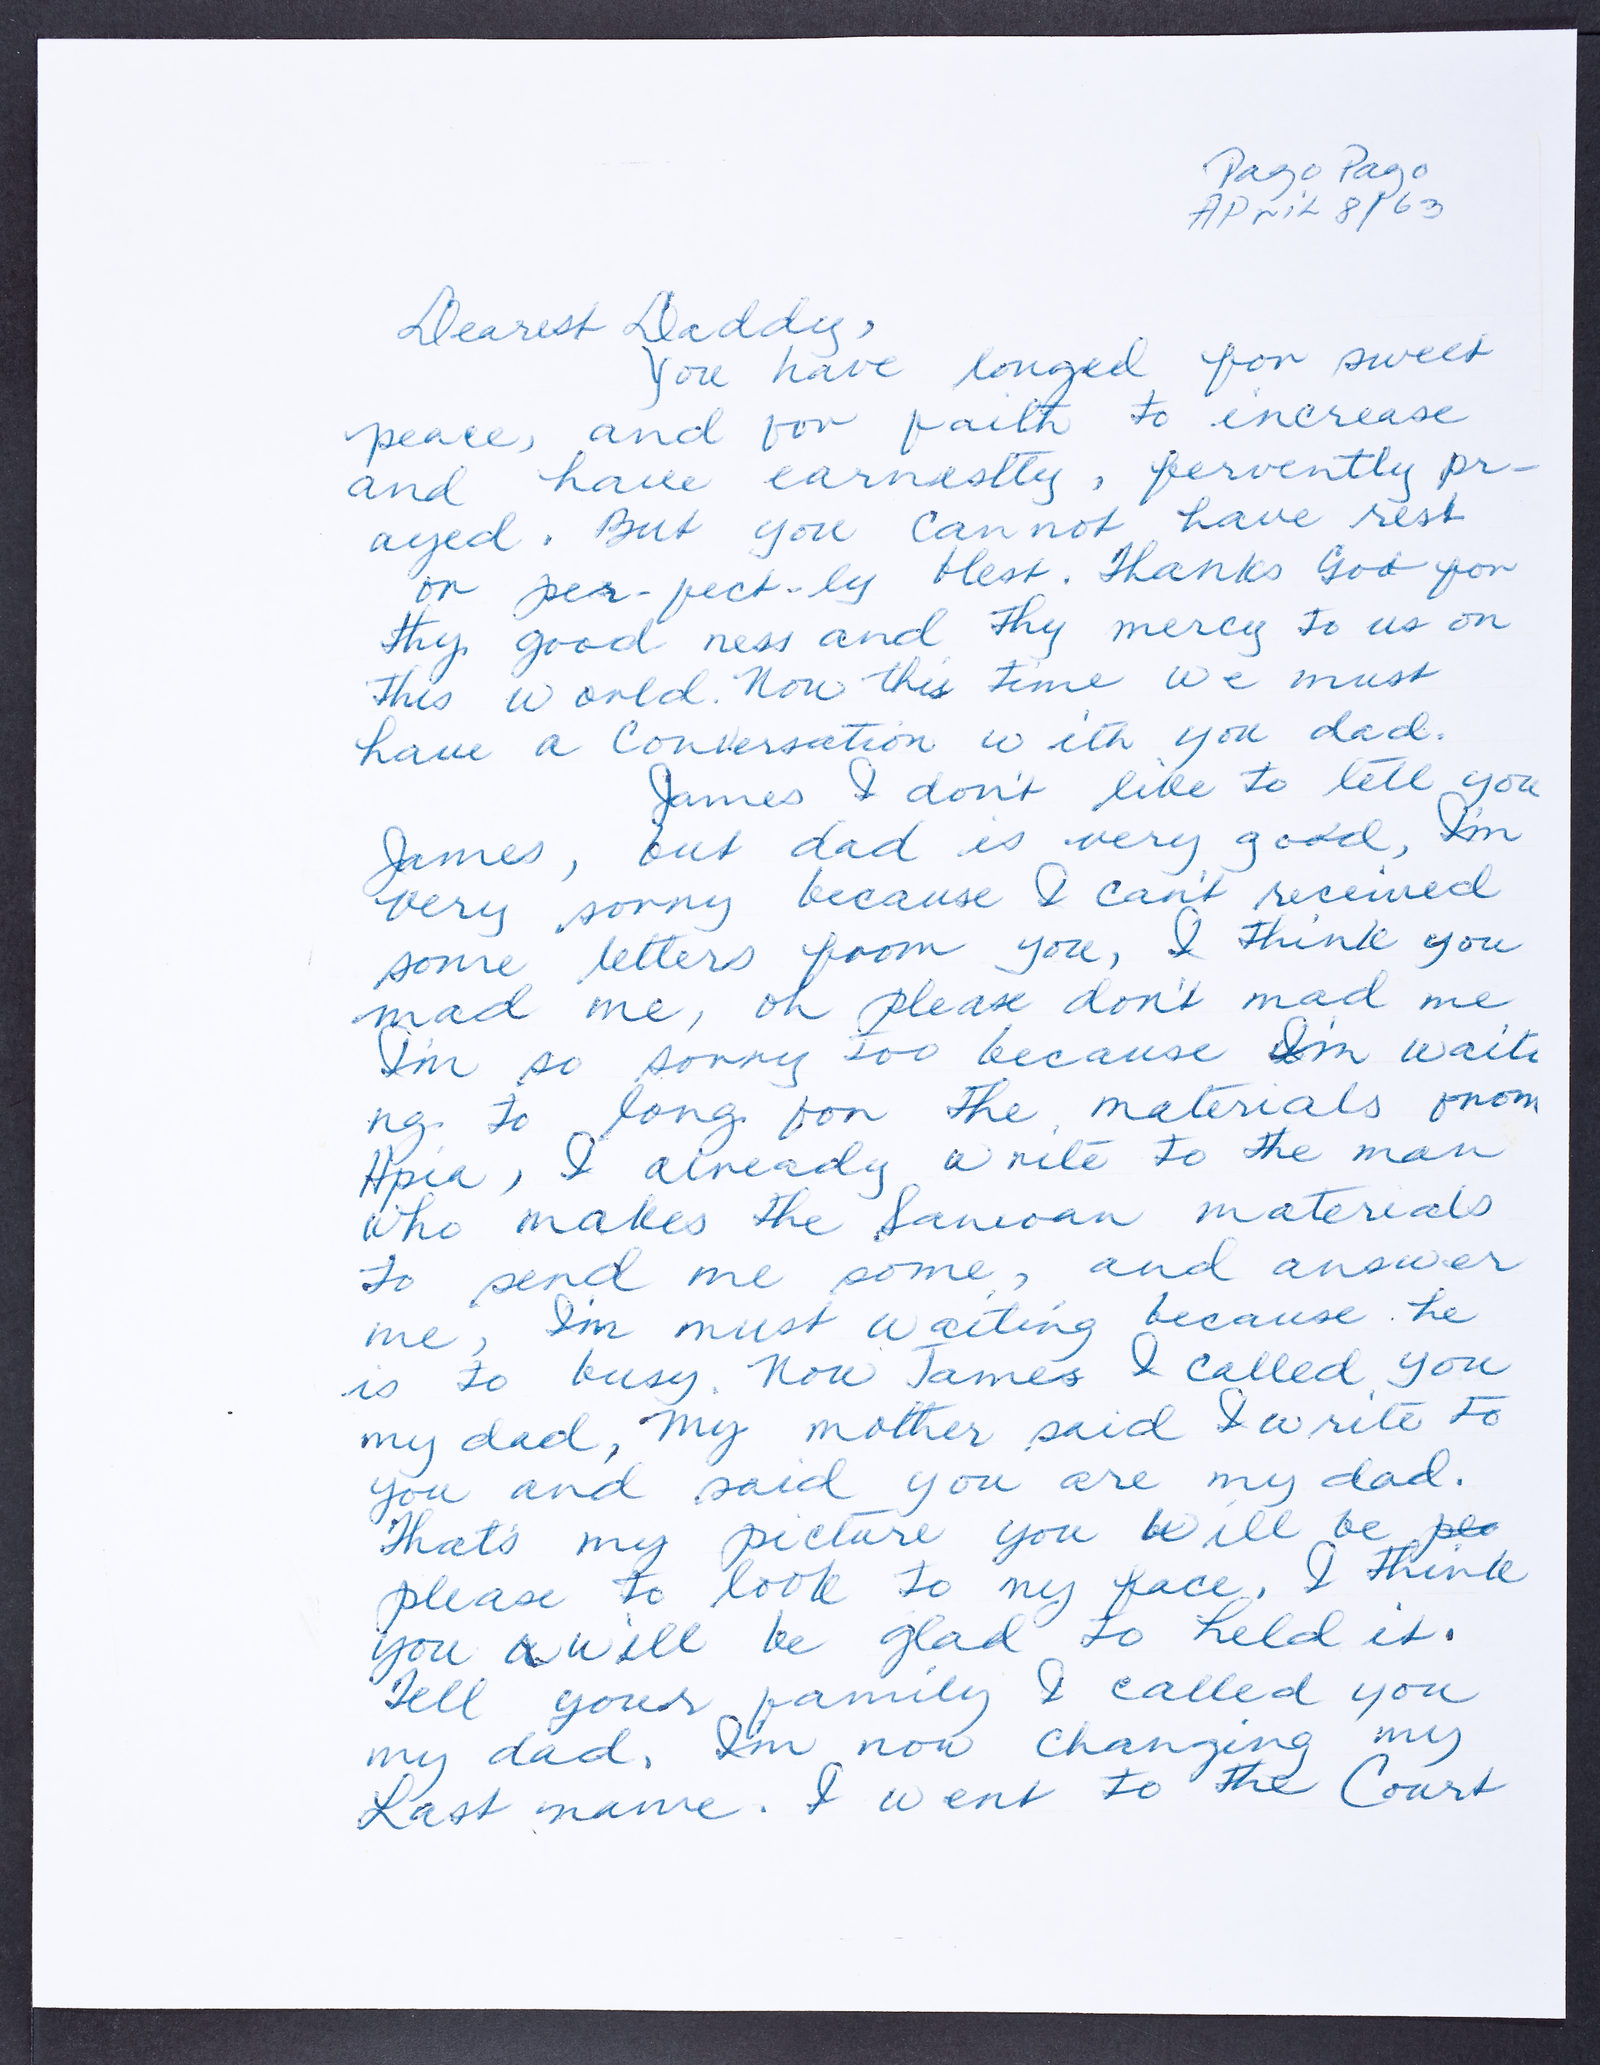 Pago Pago
April 8/63
Dearest Daddy,
You have longed for sweet
peace, and for faith to increase
and have earnestly, fervently pr-
ayed. But you cannot have rest
or per-fect-ly blest. Thanks God for
thy good ness and thy mercy to us on
this world. Now this time we must
have a conversation with you dad.
James I don't like to tell you
James, but dad is very good, I'm
very sorry because I can't received
some letters from you, I think you
mad me, oh please don't mad me
I'm so sorry too because I'm waiti
ng to long for the materials from
Apia, I already write to the man
who makes the Samoan materials
to send me some, and answer
me, I'm must waiting because he
is to busy. Now James I called you
my dad, My mother said I write to
you and said you are my dad.
That's my picture you will be ple
please to look to my face. I think
you will be glad to held it.
Tell your family I called you
my dad. I'm now changing my
Last name. I went to the Court